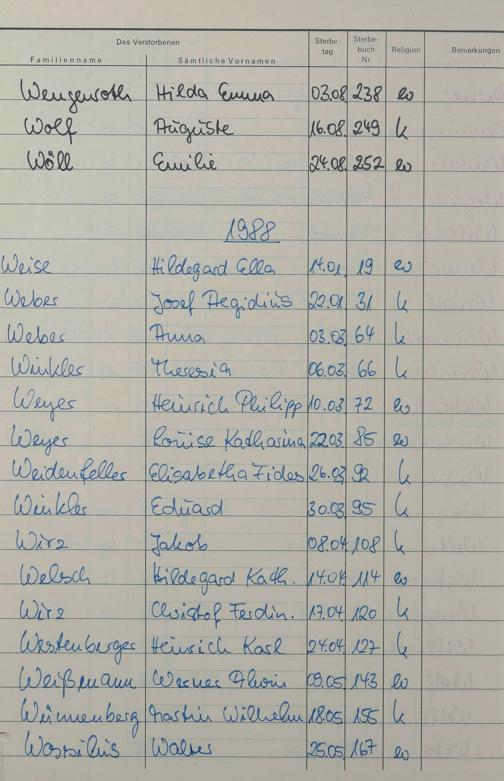 Des Verstorbenen Sterbe- Sterbe-
Familienname Sämtliche Vornamen tag buch Nr. Religion Bemerkungen
Wengenroth Hilda Emma 03.08 238 ev
Wolf Auguste 16.08 249 k
Wöll Emilie 24.08. 252 ev
1988
Weise Hildegard Ella 14.01. 19 ev
Weber Josef Aegidius 22.01. 31 k
Weber Anna 03.03. 64 k
Winkler Theresia 06.03. 66 k
Weyer Heinrich Philipp 10.03. 72 ev
Weyer Louise Katharina 22.03 85 ev
Weidenfeller Elisabetha Fides 26.03 92 k
Winkler Eduard 30.03. 95 k
Wirz Jakob 08.04 108 k
Welsch Hildegard Kath. 14.04 114 ev
Wirz Christof Ferdin. 17.04. 120 k
Westenberger Heinrich Karl 24.04. 127 k
Weißmann Werner 09.05 143 ev
Wünnenberg Martin Wilhelm 18.05 155 k
Walter 25.05 167 ev